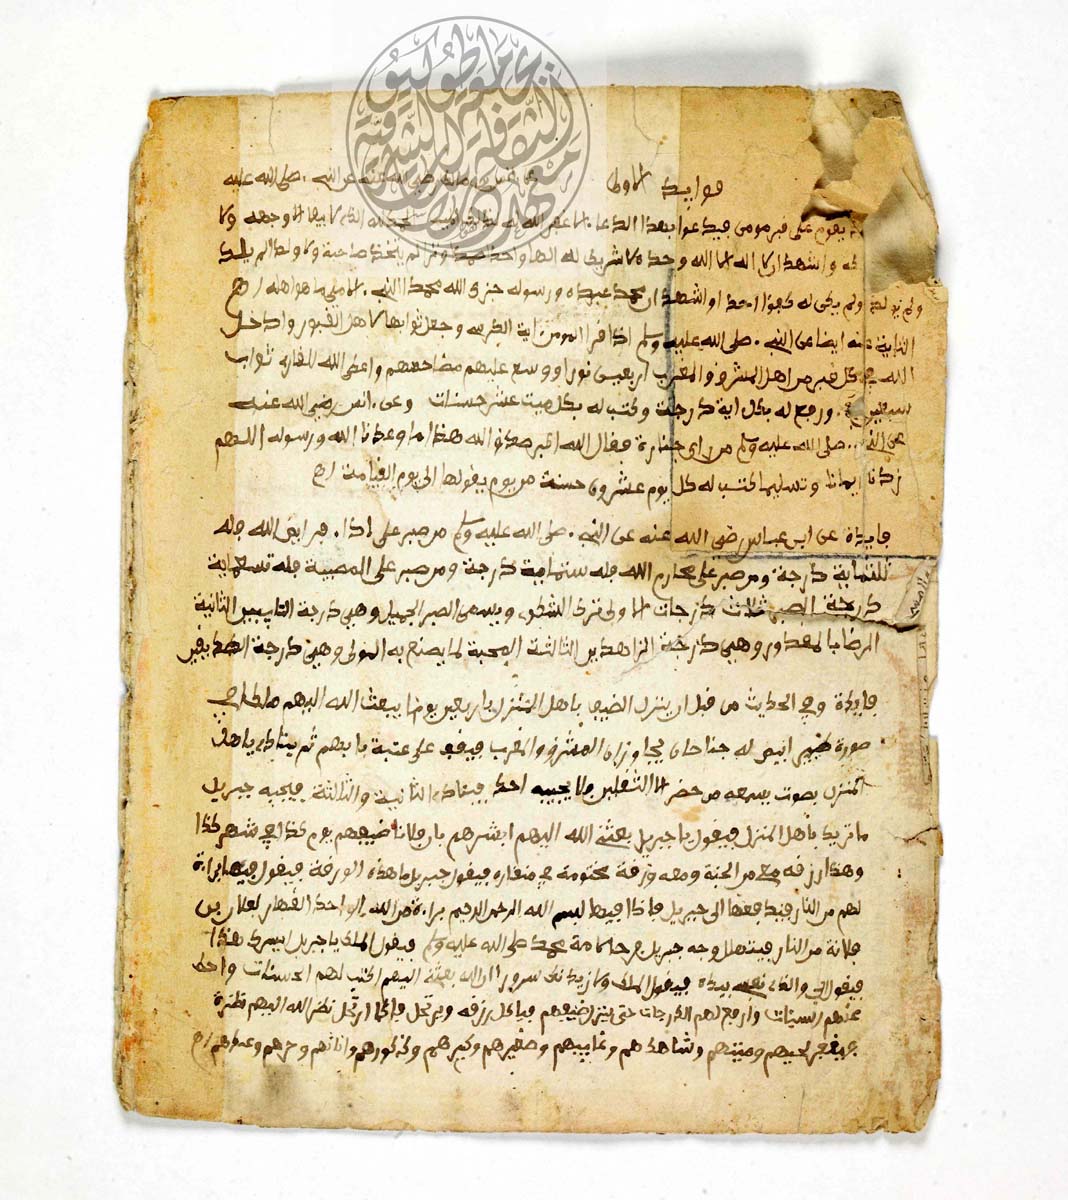 فوايد الاولى عن انس بن مالك رضي الله عنه عن النبي صلى الله عليه
يقوم على قبر مومن فيدعوا بهذا الدعا الا غفر الله له الحمد لله الذي لا يبقا الا وجهه ولا
واشهد ان لا اله الا الله وحده لا شريك له الها واحدا صمدا وترا لم يتخذ صاحبة ولا ولدا لم يلد
ولم يولد ولم يكن له كفوا احد واشهد ان محمد عبده ورسوله جزى الله محمدا النبي الامي ما هو اهله اه
الثانية عنه ايضا عن النبي صلى الله عليه وسلم اذا قرا المومن اية الكرسي وجعل ثوابها لاهل القبور وادخل
الله في كل قبر من اهل المشرق والمغرب اربعين نورا ووسع عليهم مضاجعهم واعطى الله للقاري ثواب
سبعين ورفع له بكل اية درجة وكتب له بكل ميت عشر حسنات وعن انس رضي الله عنه
عن النبي صلى الله عليه وسلم من راى جنازة فقال الله اكبر صدق الله هذا ما وعدنا الله ورسوله اللهم
زدنا ايمانا وتسليما كتب له كل يوم عشرون حسنة من يوم يقولها الى يوم القيامة اه
فايدة عن ابن عباس رضي الله عنه عن النبي صلى الله عليه وسلم من صبر على اداء فرايض الله فله
ثلثماية درجة ومن صبر على محارم الله فله ستماية درجة ومن صبر على المصيبة فله تسعماية
درجة الصبر ثلاث درجات الاولى ترك الشكوى ويسمى الصبر الجميل وهي درجة التايبين الثانية
الرضا بالمقدور وهي درجة الزاهدين الثالثة المحبة لما يصنع به المولى وهي درجة الصديقين
فايدة وفي الحديث من قبل ان ينزل الضيف باهل المنزل باربعين يوما يبعث الله اليهم ملكا في
صورة طير ابيض له جناحان يجاوزان المشرق والمغرب فيقف على عتبة بابهم ثم ينادي يا اهل
المنزل بصوت يسمعه من حضر الا الثقلين فلا يجيبه احد فينادي الثانية والثالثة فيجيبه جبريل
ما تريد باهل المنزل فيقول يا جبريل بعثني الله اليهم ابشرهم بان فلانا ضيفهم يوم كذا في شهر كذا
وهذا رزقه معي من الجنة ومعه ورقة مختومة في منقاره فيقول جبريل ما هذه الورقة فيقول فيها براءة
لهم من النار فيدفعها الى جبريل فاذا فيها بسم الله الرحمن الرحيم براءة من الله الواحد القهار لفلان بن
فلانة من النار فيتهلل وجه جبريل فرحا لامة محمد صلى الله عليه وسلم فيقول الملك يا جبريل ايسرك هذا
فيقول اي والذي نفسي بيده فيقول الملك ولازيدنك سرورا ان الله بعثني اليهم اكتب لهم الحسنات واحط
عنهم السيئات وارفع لهم الدرجات حتى ينزل ضيفهم فياكل رزقه ويرتحل فاذا ارتحل نظر الله اليهم نظرة
فيغفر لحيهم وميتهم وشاهدهم وغايبهم وصغيرهم وكبيرهم وذكورهم واناثهم وحرهم وعبدهم اه